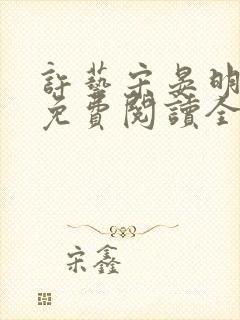 許藝宋晏明
免費閱讀全
宋鑫